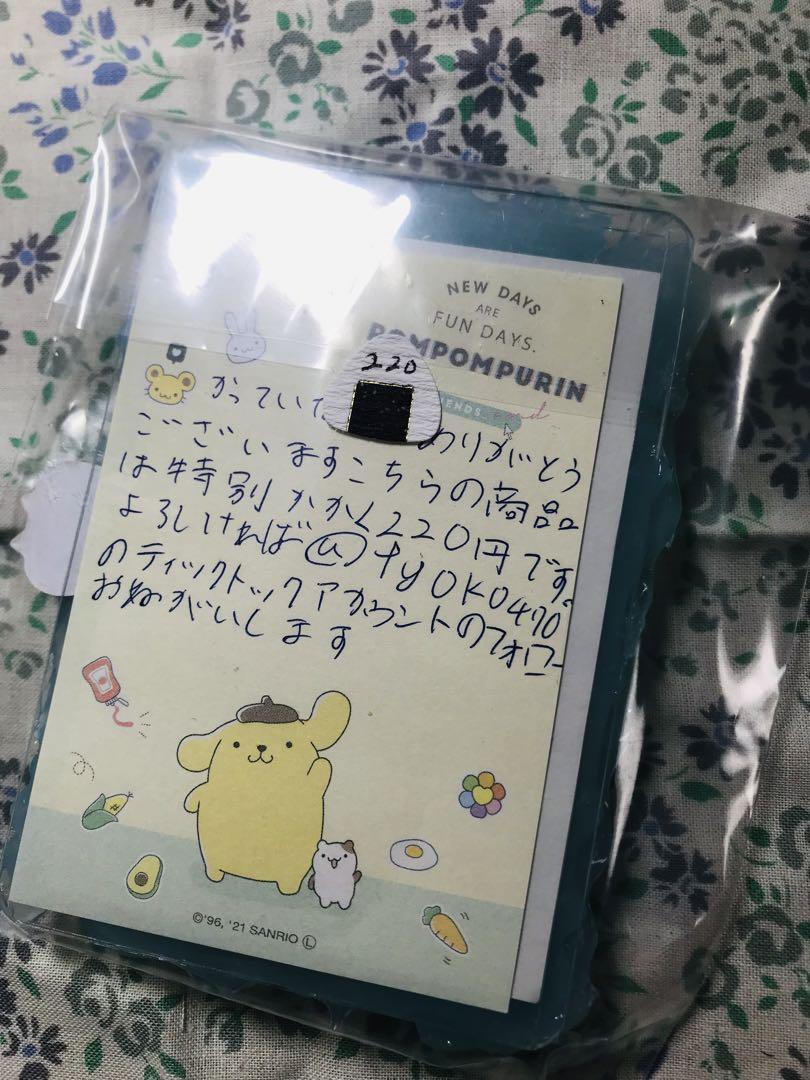 NEW DAYS
ARE
FUN DAYS.
POMPOMPURIN
220
かっていた
ありがとう
ございますこちらの商品
は特別かかく220円です。
よろしければ@tyoko470
のティックトックアカウントのフォロー
おねがいします
©'96, '21 SANRIO Ⓛ